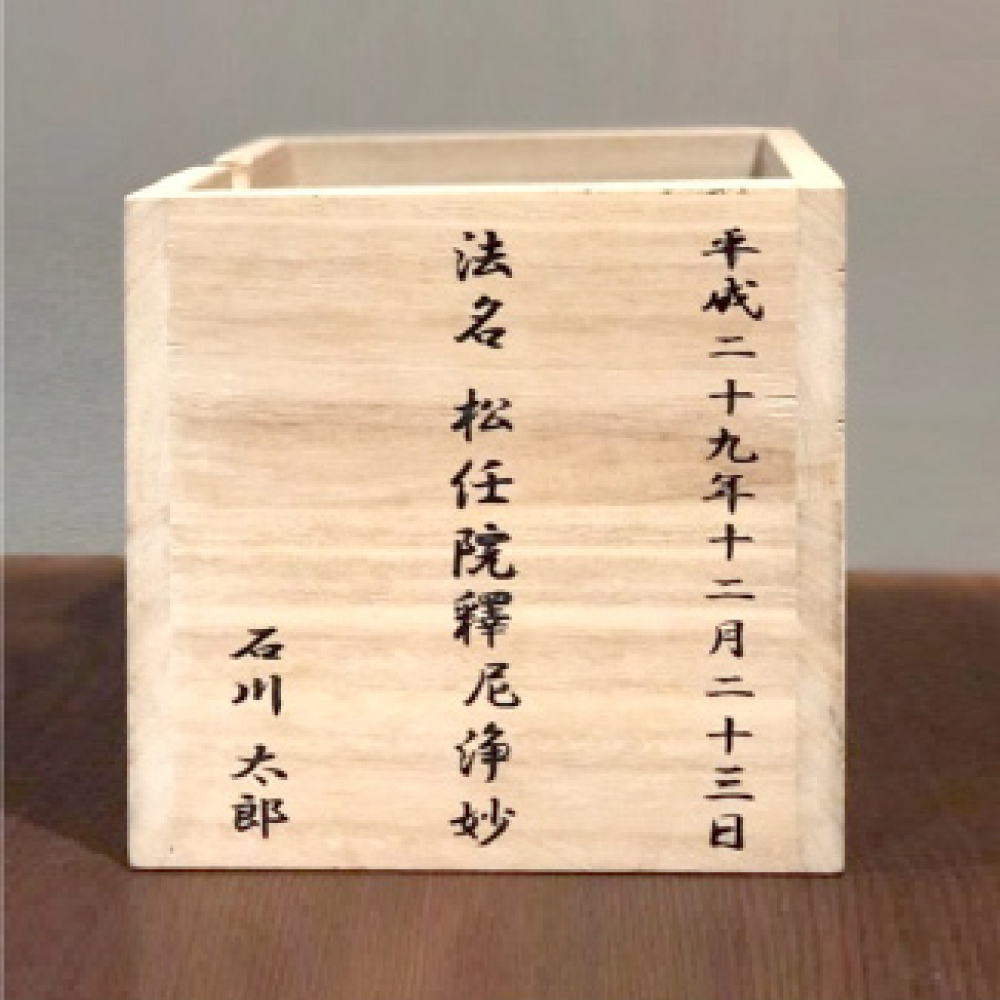 平成二十九年十二月二十三日
法名 松任院釋尼浄妙
石川 太郎